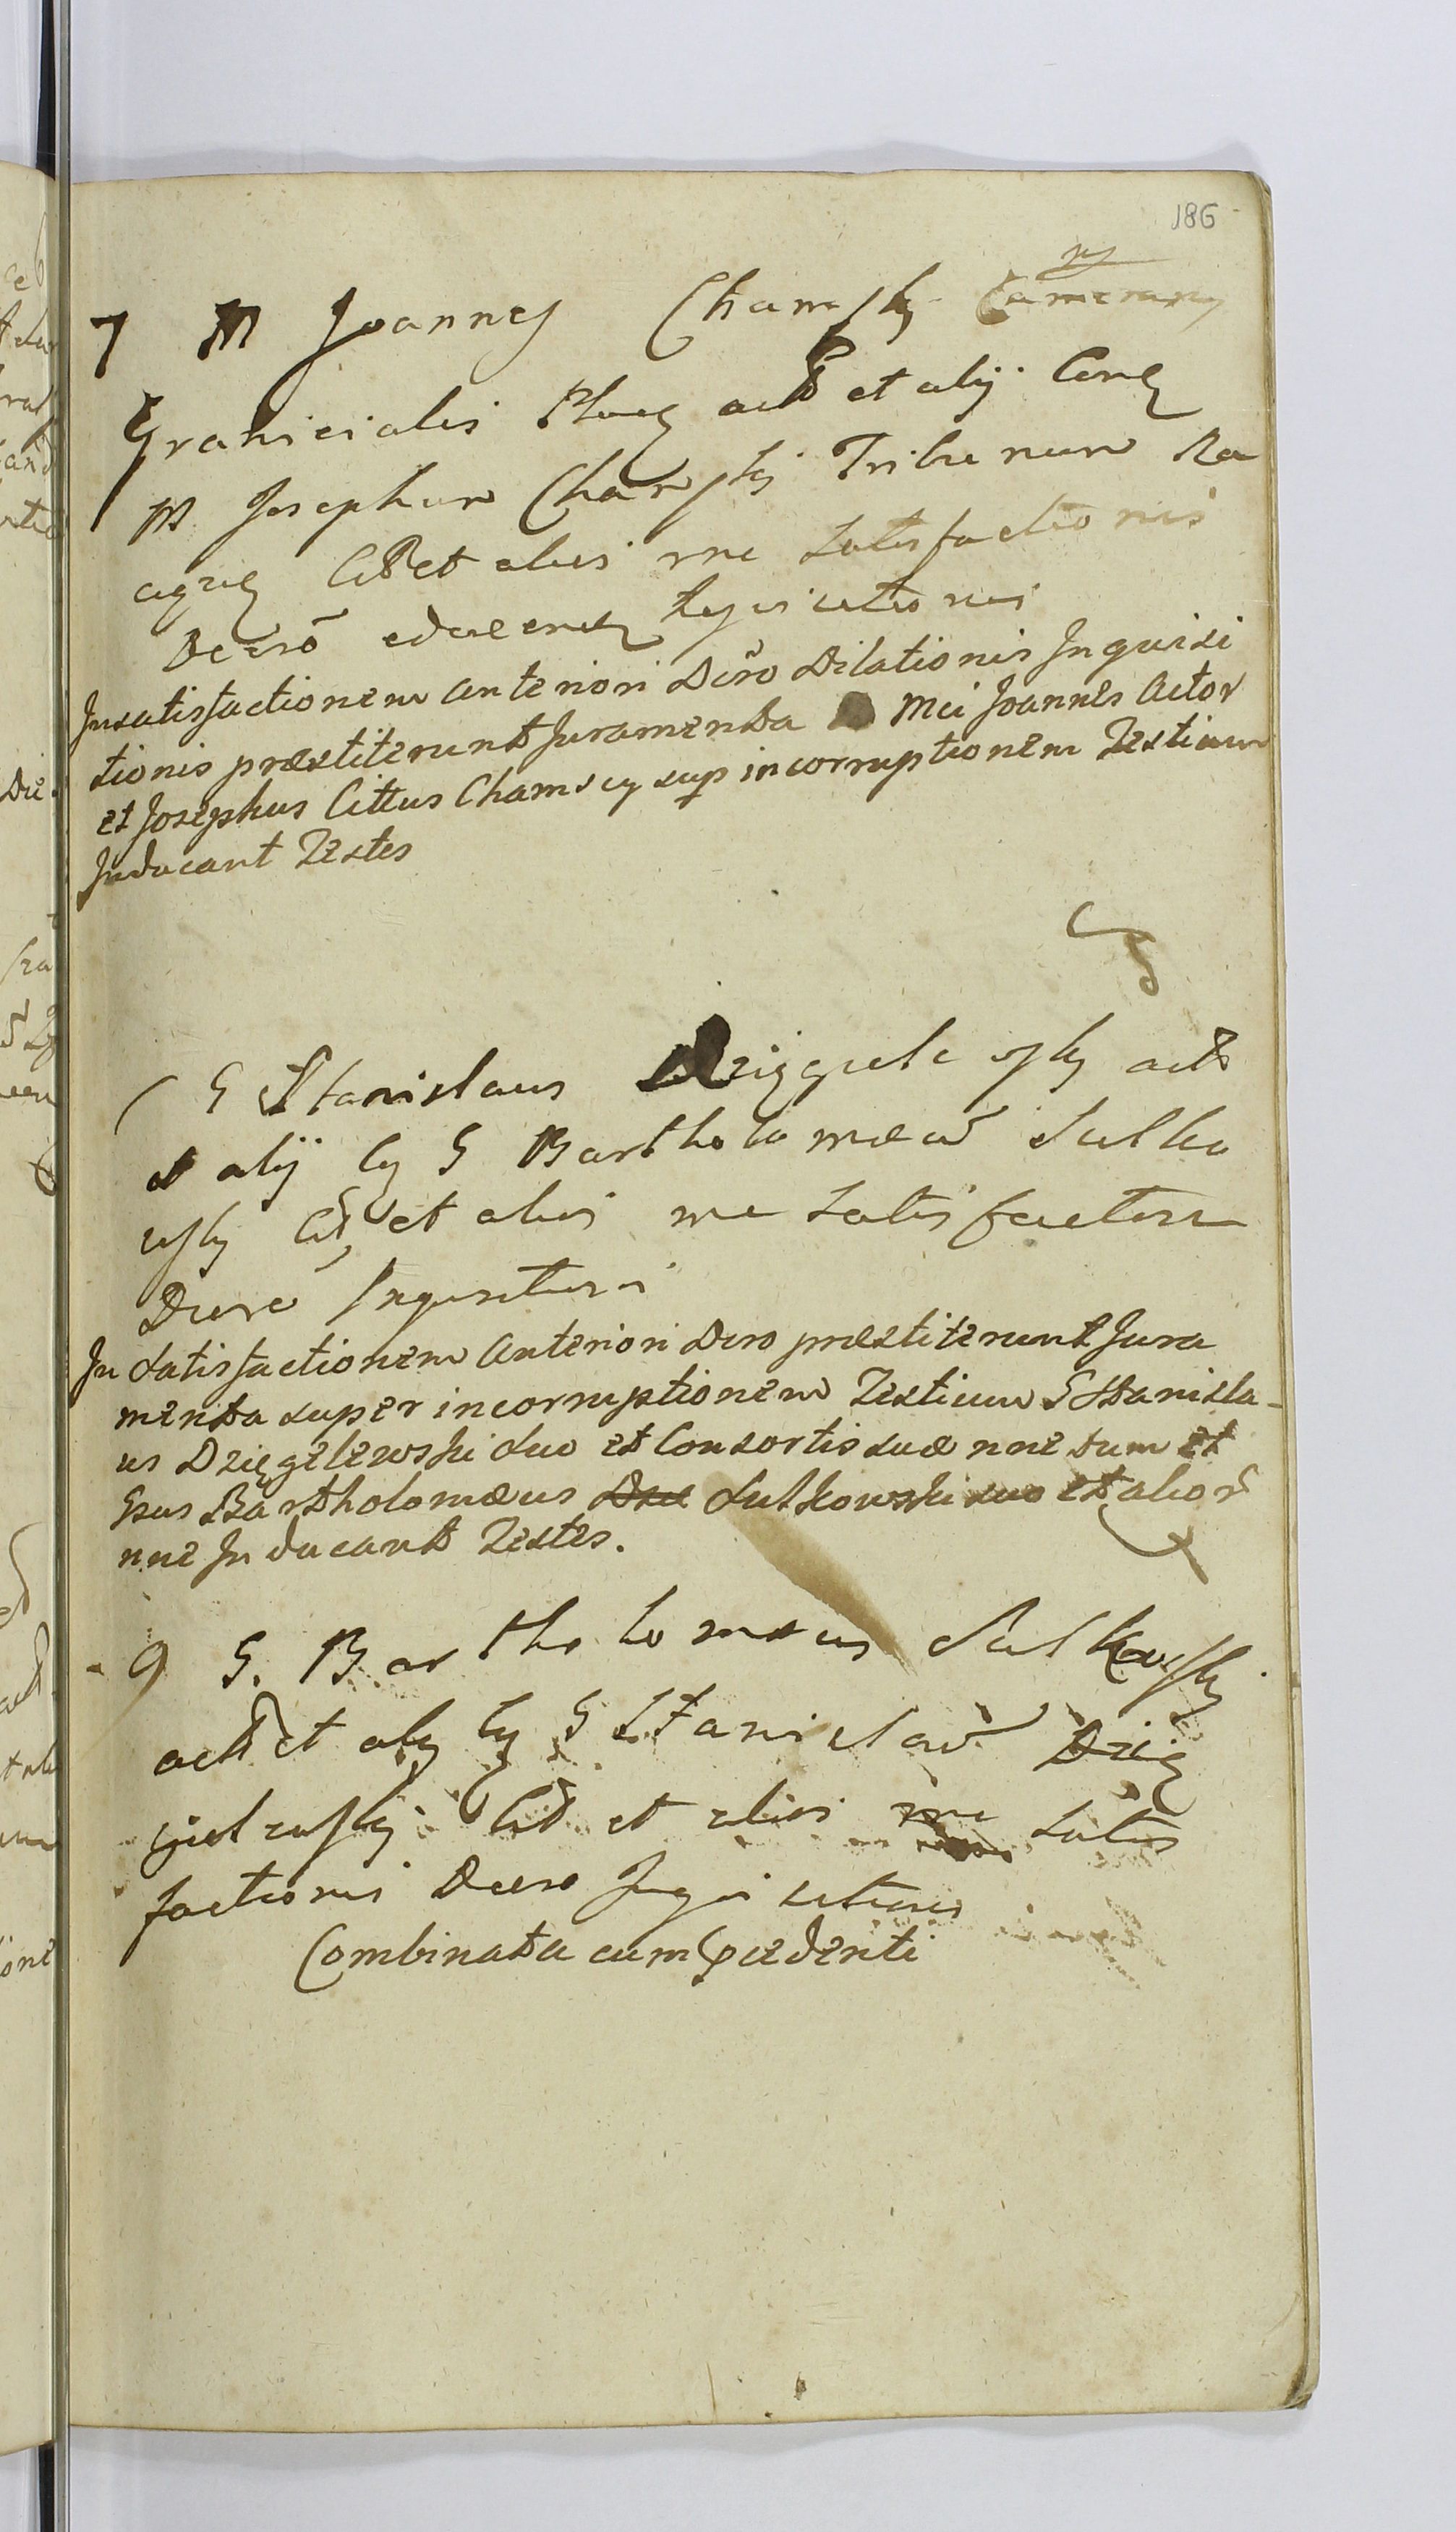 186
7 M Joannes Chamsky Camerarius
Granicialis Ploc act et alij Cong
M Josephum Chamskj Tribunum Ra
Citt et alios rne Satisfactionis
Decro Inquisitionis
In satisfactionem anteriori Decro Dilationis Inquisi
tionis præstiterunt Juramenta Mci Joannes Actor
et Josephus Cittus Chamscy sup incorruptionem Testium
Inducant Testes
G Stanislaus Dzięgielewsky act
et alij Cg G Bartholomæum Sulko
wsky Citt et alios rne Satisfactionis
Decro Inquisitionis
In Satisfactionem Anteriori Decro præstiterunt Jura
menta super incorruptionem Testium G Stanisla-
us Dzięgelewski Suo et Consortis suæ nne tum et
Gsus Bartholomæus Dzie Sulkowski suo et alior
nne Inducant Testes.
9 G. Bartholomæus Sulkowsky
act et alij Cg G Stanislaum Dzię
gielewskj Citt et alios rne Satis
factionis Decro Inquisitionis
Combinata cum Præcedenti